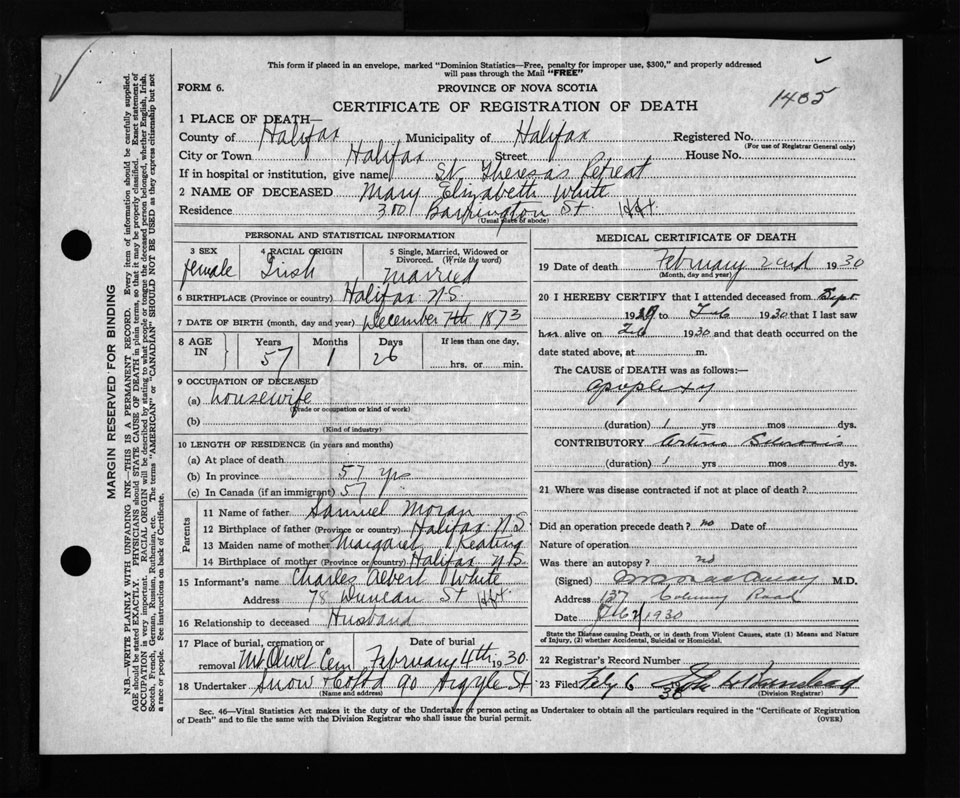 This form if placed in an envelope, marked "Dominion Statistics—Free, penalty for improper use, $300," and properly addressed
will pass through the Mail "FREE"
FORM 6.
PROVINCE OF NOVA SCOTIA
CERTIFICATE OF REGISTRATION OF DEATH
1405
1 PLACE OF DEATH—
County of Halifax Municipality of Halifax Registered No.
(For use of Registrar General only)
City or Town Halifax Street House No.
If in hospital or institution, give name St. Theresas Retreat
2 NAME OF DECEASED Mary Elizabeth White
Residence 300 Barrington St Hfx.
(Usual place of abode)
PERSONAL AND STATISTICAL INFORMATION
3 SEX female
4 RACIAL ORIGIN Irish
5 Single, Married, Widowed or Divorced. (Write the word) married
6 BIRTHPLACE (Province or country) Halifax N.S.
7 DATE OF BIRTH (month, day and year) December 7th 1873
8 AGE IN Years 57 Months 1 Days 26 If less than one day, hrs. or min.
9 OCCUPATION OF DECEASED
(a) housewife
(Trade or occupation or kind of work)
(b)
(Kind of industry)
10 LENGTH OF RESIDENCE (in years and months)
(a) At place of death
(b) In province 57 yrs
(c) In Canada (if an immigrant) 57
Parents
11 Name of father Samuel Moran
12 Birthplace of father (Province or country) Halifax N.S.
13 Maiden name of mother Margaret Keating
14 Birthplace of mother (Province or country) Halifax N.S.
15 Informant's name Charles Albert White
Address 78 Duncan St Hfx.
16 Relationship to deceased Husband
17 Place of burial, cremation or removal Mt. Olivet Cem Date of burial February 4th 1930
18 Undertaker Snow & Co Ltd 90 Argyle St
(Name and address)
MEDICAL CERTIFICATE OF DEATH
19 Date of death February 2nd 1930
(Month, day and year)
20 I HEREBY CERTIFY that I attended deceased from Sept.
1929 to Feb 1930 that I last saw
her alive on Feb 1930 and that death occurred on
date stated above, at m.
The CAUSE of DEATH was as follows:—
apoplexy
(duration) 1 yrs mos dys.
CONTRIBUTORY
(duration) 1 yrs mos dys.
21 Where was disease contracted if not at place of death?
Did an operation precede death? no Date of
Nature of operation
Was there an autopsy? no
(Signed) M.D.
Address 137 Road
Date Feb 2/1930
State the Disease causing Death, or in death from Violent Causes, state (1) Means and Nature
of Injury, (2) whether Accidental, Suicidal or Homicidal.
22 Registrar's Record Number
23 Filed Feby 6 1930 John
(Division Registrar)
Sec. 46—Vital Statistics Act makes it the duty of the Undertaker or person acting as Undertaker to obtain all the particulars required in the "Certificate of Registration
of Death" and to file the same with the Division Registrar who shall issue the burial permit.
(OVER)
MARGIN RESERVED FOR BINDING
N.B.—WRITE PLAINLY WITH UNFADING INK—THIS IS A PERMANENT RECORD. Every item of information should be carefully supplied.
AGE should be stated EXACTLY. PHYSICIANS should STATE CAUSE OF DEATH in plain terms, so that it may be properly classified. Exact statement of
OCCUPATION is very important. RACIAL ORIGIN will be described by stating to what people or tongue the deceased person belonged, whether English, Irish,
Scotch, French, German, Russian, Ruthenian, etc. The terms "AMERICAN" or "CANADIAN" SHOULD NOT BE USED as they express citizenship but not
a race or people. See instructions on back of Certificate.